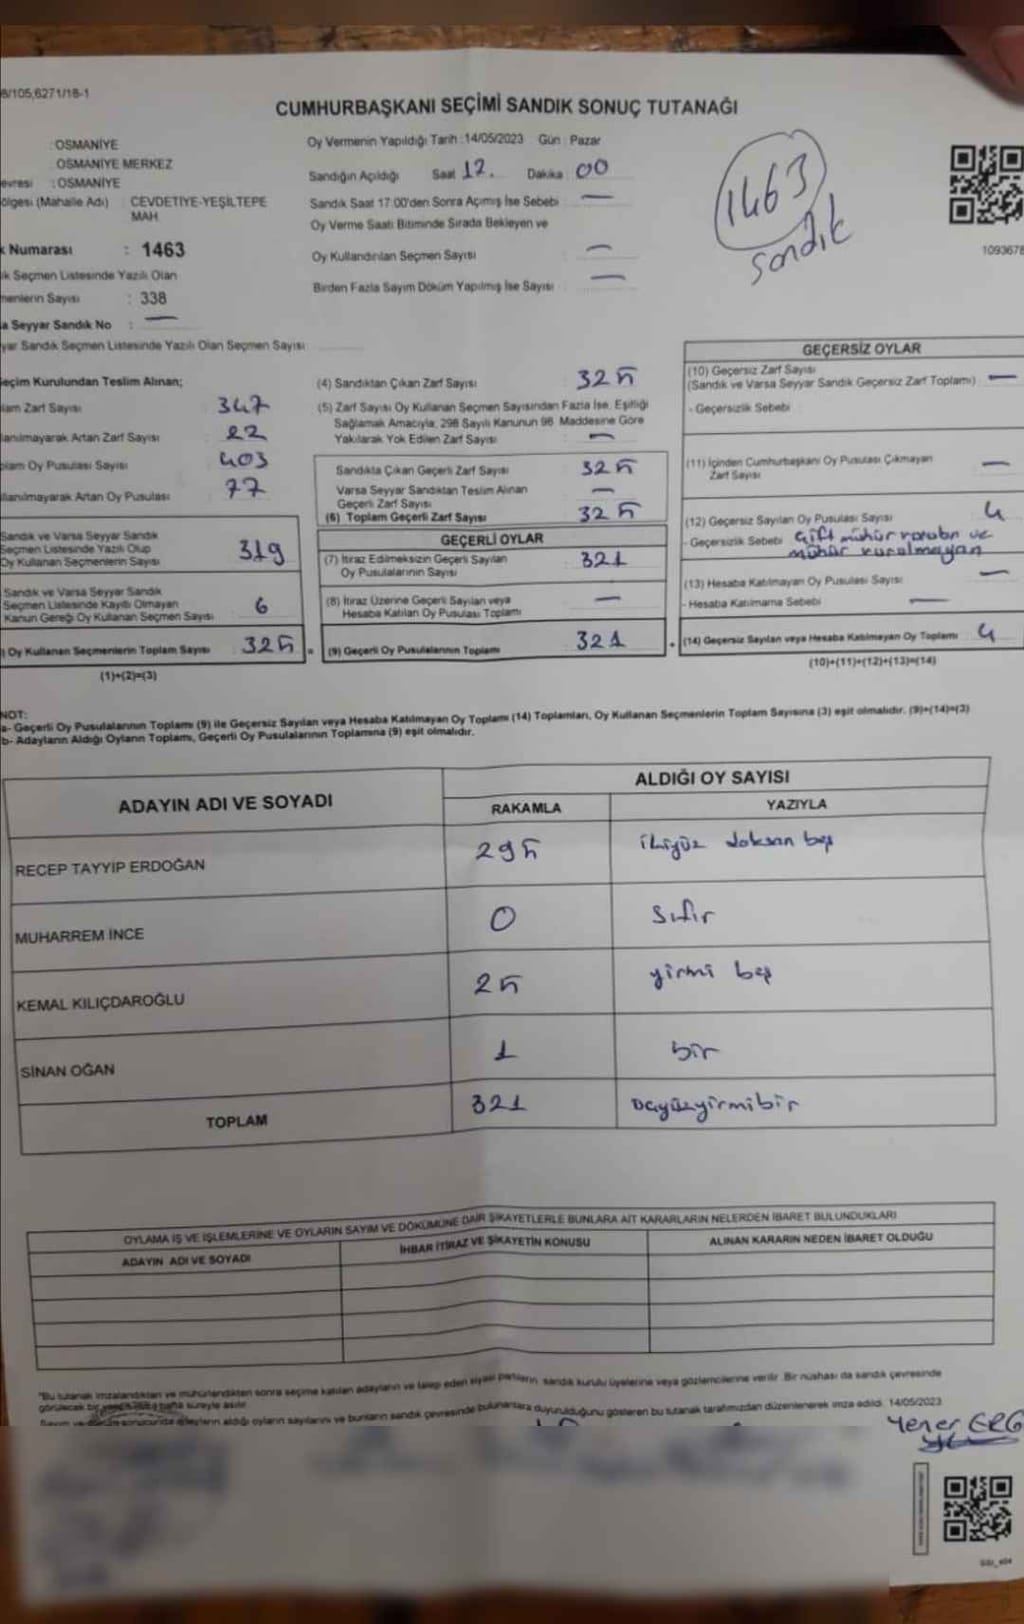 8/105,6271/18-1
CUMHURBAŞKANI SEÇİMİ SANDIK SONUÇ TUTANAĞI
: OSMANİYE
: OSMANİYE MERKEZ
evresi : OSMANİYE
ölgesi (Mahalle Adı) : CEVDETİYE-YEŞİLTEPE
MAH.
k Numarası : 1463
ık Seçmen Listesinde Yazılı Olan
menlerin Sayısı : 338
a Seyyar Sandık No : —
yar Sandık Seçmen Listesinde Yazılı Olan Seçmen Sayısı
Oy Vermenin Yapıldığı Tarih :14/05/2023 Gün : Pazar
Sandığın Açıldığı Saat 12. Dakika : 00
Sandık Saat 17:00'den Sonra Açımış İse Sebebi : —
Oy Verme Saati Bitiminde Sırada Bekleyen ve
Oy Kullandırılan Seçmen Sayısı : —
Birden Fazla Sayım Döküm Yapılmış İse Sayısı : —
1463
sandık
1093678
eçim Kurulundan Teslim Alınan;
lam Zarf Sayısı : 347
lanılmayarak Artan Zarf Sayısı : 22
plam Oy Pusulası Sayısı : 403
llanılmayarak Artan Oy Pusulası : 77
Sandık ve Varsa Seyyar Sandık
Seçmen Listesinde Yazılı Olup
Oy Kullanan Seçmenlerin Sayısı 319
Sandık ve Varsa Seyyar Sandık
Seçmen Listesinde Kayıtlı Olmayan
Kanun Gereği Oy Kullanan Seçmen Sayısı 6
) Oy Kullanan Seçmenlerin Toplam Sayısı 325 =
(1)+(2)=(3)
(4) Sandıktan Çıkan Zarf Sayısı : 325
(5) Zarf Sayısı Oy Kullanan Seçmen Sayısından Fazla İse, Eşitliği
Sağlamak Amacıyla, 298 Sayılı Kanunun 98. Maddesine Göre
Yakılarak Yok Edilen Zarf Sayısı : —
Sandıkta Çıkan Geçerli Zarf Sayısı : 325
Varsa Seyyar Sandıktan Teslim Alınan
Geçerli Zarf Sayısı : —
(6) Toplam Geçerli Zarf Sayısı : 325
GEÇERLİ OYLAR
(7) İtiraz Edilmeksizin Geçerli Sayılan
Oy Pusulalarının Sayısı : 321
(8) İtiraz Üzerine Geçerli Sayılan veya
Hesaba Katılan Oy Pusulası Toplamı : —
(9) Geçerli Oy Pusulalarının Toplamı : 321 +
GEÇERSİZ OYLAR
(10) Geçersiz Zarf Sayısı
(Sandık ve Varsa Seyyar Sandık Geçersiz Zarf Toplamı) : —
- Geçersizlik Sebebi :
(11) İçinden Cumhurbaşkanı Oy Pusulası Çıkmayan
Zarf Sayısı : —
(12) Geçersiz Sayılan Oy Pusulası Sayısı : 4
- Geçersizlik Sebebi : Çift mühür vurulan ve
mühür vurulmayan
(13) Hesaba Katılmayan Oy Pusulası Sayısı : —
- Hesaba Katılmama Sebebi : —
(14) Geçersiz Sayılan veya Hesaba Katılmayan Oy Toplamı : 4
(10)+(11)+(12)+(13)=(14)
NOT:
a- Geçerli Oy Pusulalarının Toplamı (9) ile Geçersiz Sayılan veya Hesaba Katılmayan Oy Toplamı (14) Toplamları, Oy Kullanan Seçmenlerin Toplam Sayısına (3) eşit olmalıdır. (9)+(14)=(3)
b- Adayların Aldığı Oyların Toplamı, Geçerli Oy Pusulalarının Toplamına (9) eşit olmalıdır.
ADAYIN ADI VE SOYADI ALDIĞI OY SAYISI
RAKAMLA YAZIYLA
RECEP TAYYİP ERDOĞAN 295 ikiyüz doksan beş
MUHARREM İNCE 0 Sıfır
KEMAL KILIÇDAROĞLU 25 yirmi beş
SİNAN OĞAN 1 bir
TOPLAM 321 üçyüzyirmibir
OYLAMA İŞ VE İŞLEMLERİNE VE OYLARIN SAYIM VE DÖKÜMÜNE DAİR ŞİKAYETLERLE BUNLARA AİT KARARLARIN NELERDEN İBARET BULUNDUKLARI
ADAYIN ADI VE SOYADI İHBAR İTİRAZ VE ŞİKAYETİN KONUSU ALINAN KARARIN NEDEN İBARET OLDUĞU
"Bu tutanak imzalandıktan ve mühürlendikten sonra seçime katılan adayların ve talep eden siyasi partilerin sandık kurulu üyelerine veya gözlemcilerine verilir. Bir nüshası da sandık çevresinde
görülecek bir yere bir hafta süreyle asılır.
Sayım ve döküm sonucunda adayların aldığı oyların sayılarını ve bunların sandık çevresinde bulunanlara duyurulduğunu gösteren bu tutanak tarafımızdan düzenlenerek imza edildi. 14/05/2023
Yener ERG